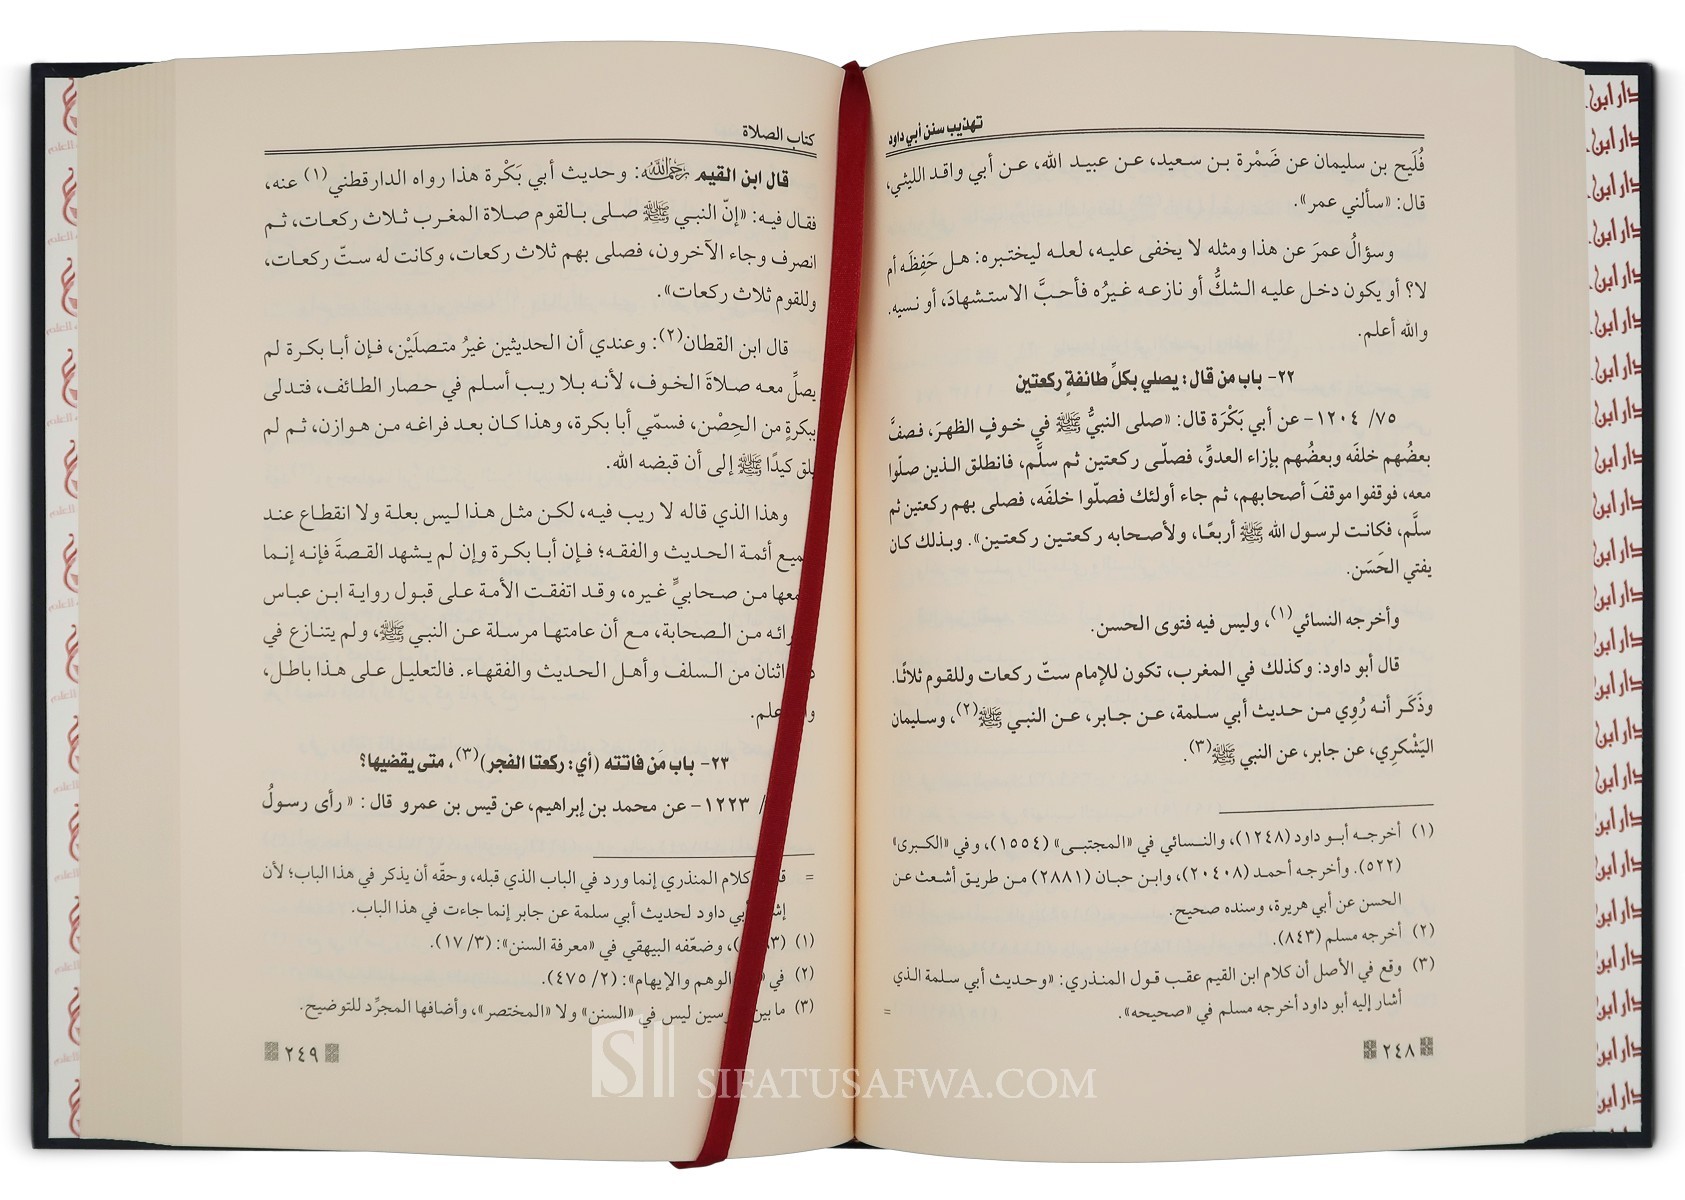 تهذيب سنن أبي داود
فُلَيح بن سليمان عن ضَمْرة بن سعيد، عن عبيد الله، عن أبي واقد الليثي،
قال: «سألني عمر».
وسؤالُ عمرَ عن هذا ومثله لا يخفى عليه، لعله ليختبره: هل حَفِظَه أم
لا؟ أو يكون دخل عليه الشكُّ أو نازعه غيرُه فأحبَّ الاستشهادَ، أو نسيه.
والله أعلم.
٢٢- باب من قال: يصلي بكلِّ طائفةٍ ركعتين
٧٥/ ١٢٠٤- عن أبي بَكْرَة قال: «صلى النبيُّ ﷺ في خوفٍ الظهرَ، فصفَّ
بعضُهم خلفَه وبعضُهم بإزاء العدوِّ، فصلّى ركعتين ثم سلَّم، فانطلق الذين صلّوا
معه، فوقفوا موقفَ أصحابهم، ثم جاء أولئك فصلّوا خلفَه، فصلى بهم ركعتين ثم
سلَّم، فكانت لرسول الله ﷺ أربعًا، ولأصحابه ركعتين ركعتين». وبذلك كان
يفتي الحَسَن.
وأخرجه النسائي(١)، وليس فيه فتوى الحسن.
قال أبو داود: وكذلك في المغرب، تكون للإمام ستّ ركعات وللقوم ثلاثًا.
وذَكَر أنه رُوِي من حديث أبي سلمة، عن جابر، عن النبي ﷺ(٢)، وسليمان
اليَشْكرِي، عن جابر، عن النبي ﷺ(٣).
(١) أخرجه أبو داود (١٢٤٨)، والنسائي في «المجتبى» (١٥٥٤)، وفي «الكبرى»
(٥٢٢). وأخرجه أحمد (٢٠٤٠٨)، وابن حبان (٢٨٨١) من طريق أشعث عن
الحسن عن أبي هريرة، وسنده صحيح.
(٢) أخرجه مسلم (٨٤٣).
(٣) وقع في الأصل أن كلام ابن القيم عقب قول المنذري: «وحديث أبي سلمة الذي
أشار إليه أبو داود أخرجه مسلم في «صحيحه».  =
٢٤٨
كتاب الصلاة
قال ابن القيم رحمه الله: وحديث أبي بَكْرة هذا رواه الدارقطني(١) عنه،
فقال فيه: «إنّ النبي ﷺ صلى بالقوم صلاة المغرب ثلاث ركعات، ثم
انصرف وجاء الآخرون، فصلى بهم ثلاث ركعات، وكانت له ستّ ركعات،
وللقوم ثلاث ركعات».
قال ابن القطان(٢): وعندي أن الحديثين غيرُ متصلَيْن، فإن أبا بكرة لم
يصلِّ معه صلاةَ الخوف، لأنه بلا ريب أسلم في حصار الطائف، فتدلى
ببكرةٍ من الحِصْن، فسمّي أبا بكرة، وهذا كان بعد فراغه من هوازن، ثم لم
يلق كيدًا ﷺ إلى أن قبضه الله.
وهذا الذي قاله لا ريب فيه، لكن مثل هذا ليس بعلة ولا انقطاع عند
ميع أئمة الحديث والفقه؛ فإن أبا بكرة وإن لم يشهد القصةَ فإنه إنما
معها من صحابيٍّ غيره، وقد اتفقت الأمة على قبول رواية ابن عباس
رائه من الصحابة، مع أن عامتها مرسلة عن النبي ﷺ، ولم يتنازع في
اثنان من السلف وأهل الحديث والفقهاء. فالتعليل على هذا باطل،
علم.
٢٣- باب مَن فاتته (أي: ركعتا الفجر)(٣)، متى يقضيها؟
/ ١٢٢٣- عن محمد بن إبراهيم، عن قيس بن عمرو قال: «رأى رسولُ
= كلام المنذري إنما ورد في الباب الذي قبله، وحقّه أن يذكر في هذا الباب؛ لأن
أبي داود لحديث أبي سلمة عن جابر إنما جاءت في هذا الباب.
(١) ، وضعّفه البيهقي في «معرفة السنن»: (٣/ ١٧).
(٢) في الوهم والإيهام»: (٢/ ٤٧٥).
(٣) ما بين سين ليس في «السنن» ولا «المختصر»، وأضافها المجرِّد للتوضيح.
٢٤٩
SIFATUSAFWA.COM